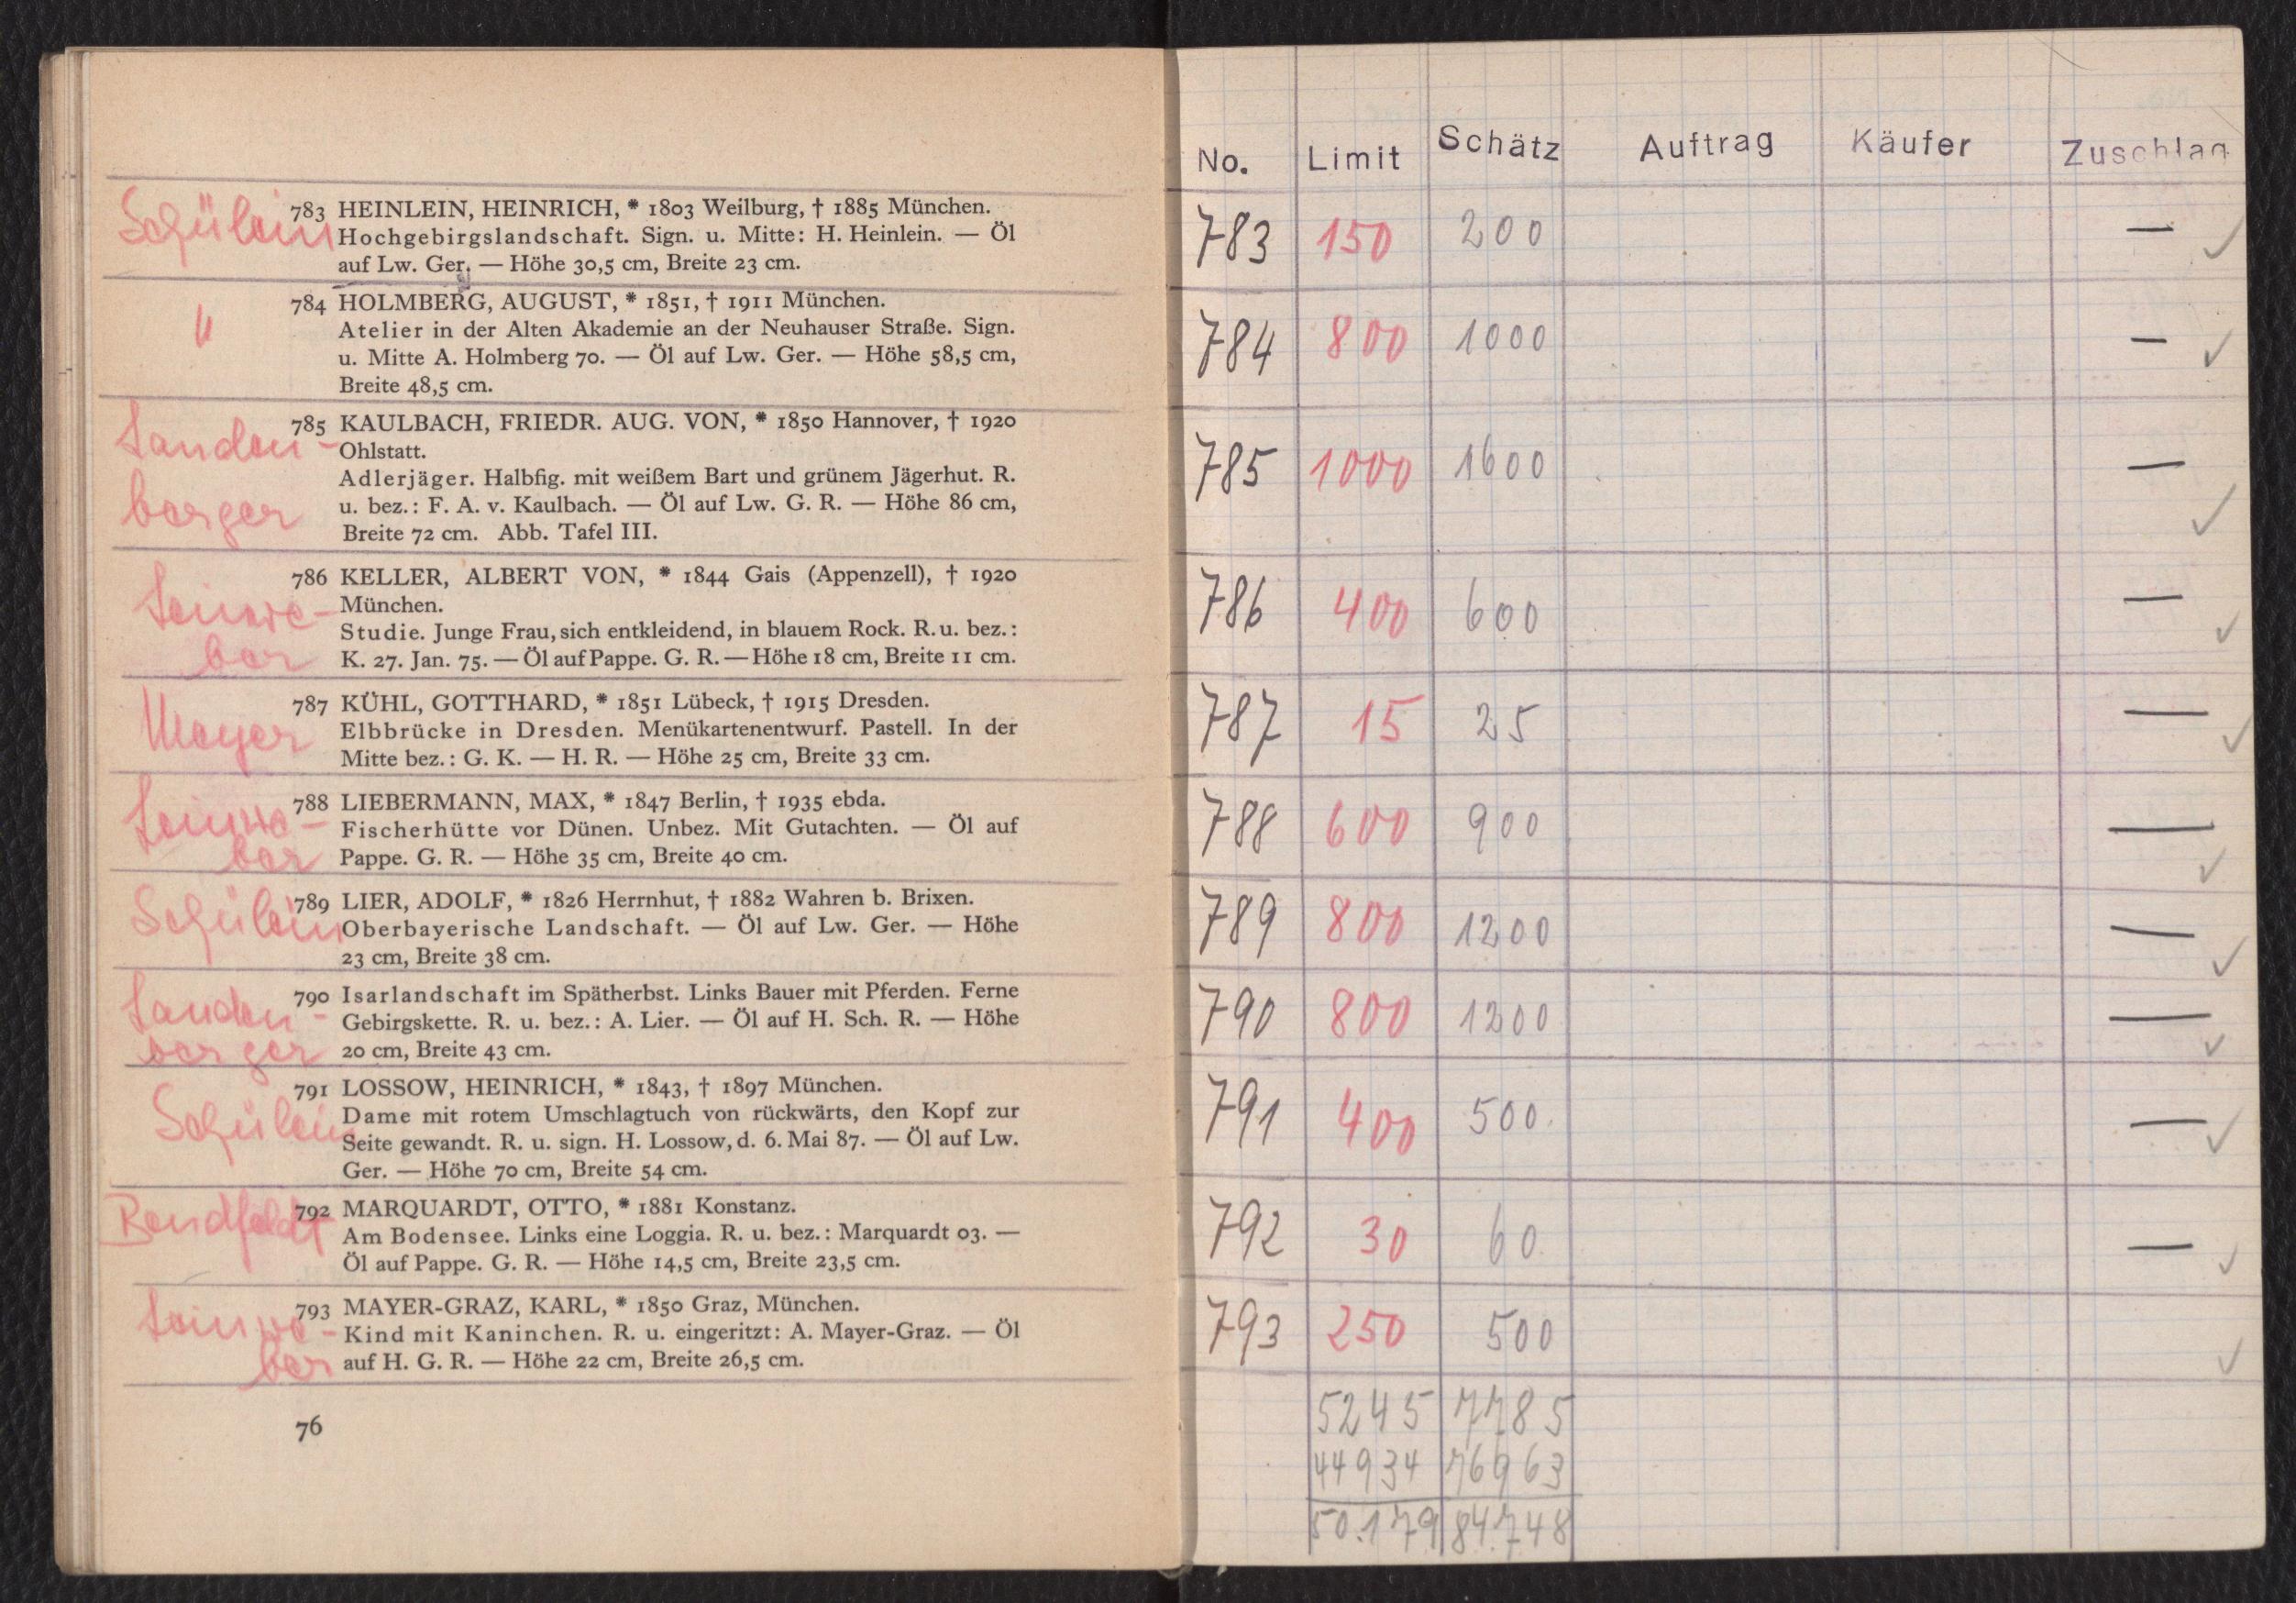 Schülein
783 HEINLEIN, HEINRICH, * 1803 Weilburg, † 1885 München.
Hochgebirgslandschaft. Sign. u. Mitte: H. Heinlein. — Öl
auf Lw. Ger. — Höhe 30,5 cm, Breite 23 cm.
"
784 HOLMBERG, AUGUST, * 1851, † 1911 München.
Atelier in der Alten Akademie an der Neuhauser Straße. Sign.
u. Mitte A. Holmberg 70. — Öl auf Lw. Ger. — Höhe 58,5 cm,
Breite 48,5 cm.
Landen-
berger
785 KAULBACH, FRIEDR. AUG. VON, * 1850 Hannover, † 1920
Ohlstatt.
Adlerjäger. Halbfig. mit weißem Bart und grünem Jägerhut. R.
u. bez.: F. A. v. Kaulbach. — Öl auf Lw. G. R. — Höhe 86 cm,
Breite 72 cm. Abb. Tafel III.
Leinwe-
ber
786 KELLER, ALBERT VON, * 1844 Gais (Appenzell), † 1920
München.
Studie. Junge Frau, sich entkleidend, in blauem Rock. R. u. bez.:
K. 27. Jan. 75. — Öl auf Pappe. G. R. — Höhe 18 cm, Breite 11 cm.
Meyer
787 KÜHL, GOTTHARD, * 1851 Lübeck, † 1915 Dresden.
Elbbrücke in Dresden. Menükartenentwurf. Pastell. In der
Mitte bez.: G. K. — H. R. — Höhe 25 cm, Breite 33 cm.
Leinwe-
ber
788 LIEBERMANN, MAX, * 1847 Berlin, † 1935 ebda.
Fischerhütte vor Dünen. Unbez. Mit Gutachten. — Öl auf
Pappe. G. R. — Höhe 35 cm, Breite 40 cm.
Schülein
789 LIER, ADOLF, * 1826 Herrnhut, † 1882 Wahren b. Brixen.
Oberbayerische Landschaft. — Öl auf Lw. Ger. — Höhe
23 cm, Breite 38 cm.
Landen-
berger
790 Isarlandschaft im Spätherbst. Links Bauer mit Pferden. Ferne
Gebirgskette. R. u. bez.: A. Lier. — Öl auf H. Sch. R. — Höhe
20 cm, Breite 43 cm.
Schülein
791 LOSSOW, HEINRICH, * 1843, † 1897 München.
Dame mit rotem Umschlagtuch von rückwärts, den Kopf zur
Seite gewandt. R. u. sign. H. Lossow, d. 6. Mai 87. — Öl auf Lw.
Ger. — Höhe 70 cm, Breite 54 cm.
Bendfeldt
792 MARQUARDT, OTTO, * 1881 Konstanz.
Am Bodensee. Links eine Loggia. R. u. bez.: Marquardt 03. —
Öl auf Pappe. G. R. — Höhe 14,5 cm, Breite 23,5 cm.
Leinwe-
ber
793 MAYER-GRAZ, KARL, * 1850 Graz, München.
Kind mit Kaninchen. R. u. eingeritzt: A. Mayer-Graz. — Öl
auf H. G. R. — Höhe 22 cm, Breite 26,5 cm.
76
No. Limit Schätz Auftrag Käufer Zuschlag
783 150 200 — ✓
784 800 1000 — ✓
785 1000 1600 — ✓
786 400 600 — ✓
787 15 25 — ✓
788 600 900 — ✓
789 800 1200 — ✓
790 800 1200 — ✓
791 400 500 — ✓
792 30 60 — ✓
793 250 500 ✓
5245 7785
44934 76963
50.179 84.748